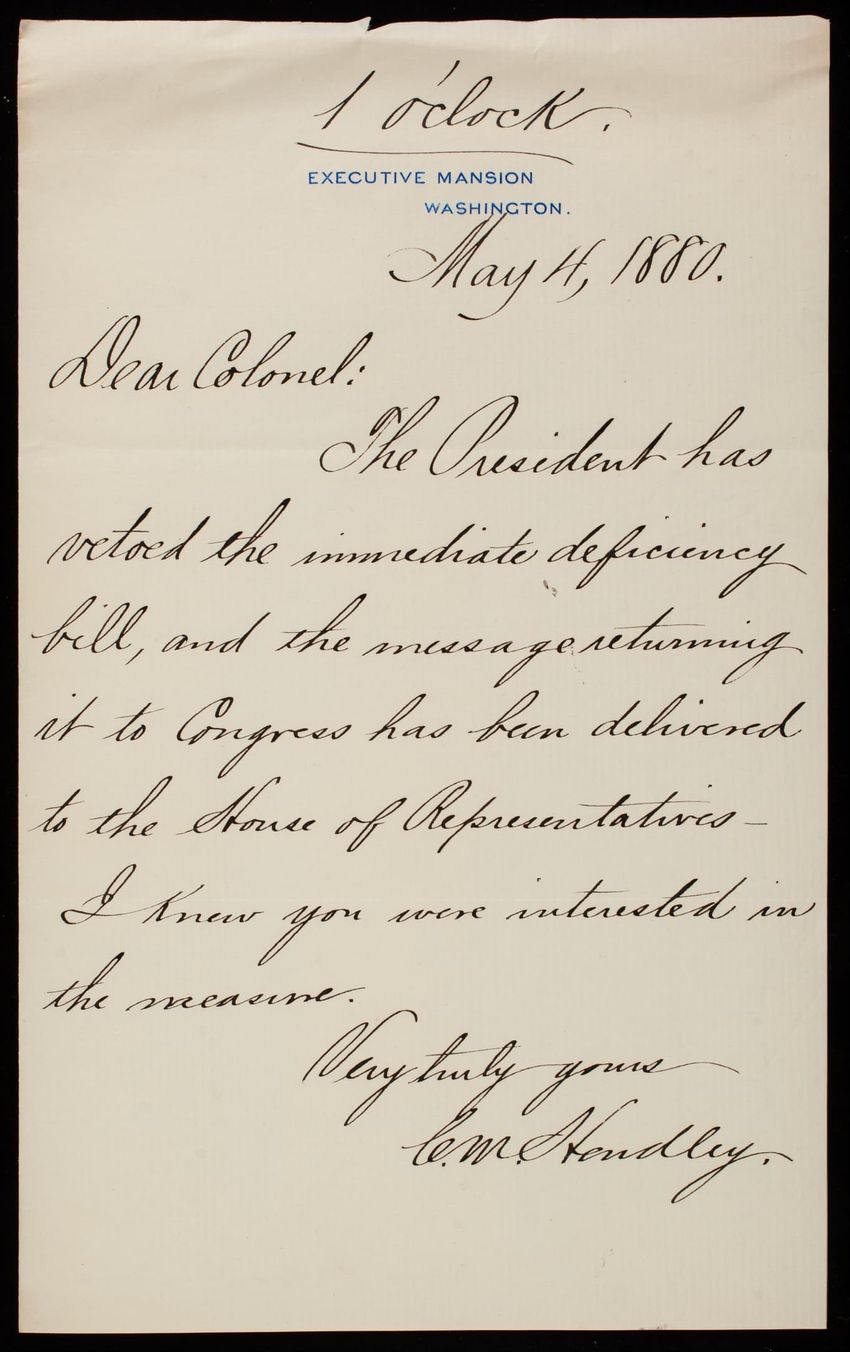 1 o'clock.
EXECUTIVE MANSION
WASHINGTON.
May 4, 1880.
Dear Colonel:
The President has
vetoed the immediate deficiency
bill, and the message returning
it to Congress has been delivered
to the House of Representatives—
I knew you were interested in
the measure.
Very truly yours
C.M. Hendley.